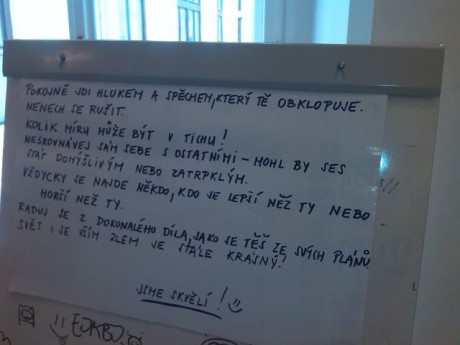 POKOJNĚ JDI HLUKEM A SPĚCHEM, KTERÝ TĚ OBKLOPUJE.
NENECH SE RUŠIT.
KOLIK MÍRU MŮŽE BÝT V TICHU!
NESROVNÁVEJ SÁM SEBE S OSTATNÍMI – MOHL BY SES
STÁT DOMÝŠLIVÝM NEBO ZATRPKLÝM.
VŽDYCKY SE NAJDE NĚKDO, KDO JE LEPŠÍ NEŽ TY NEBO
HORŠÍ NEŽ TY.
RADUJ SE Z DOKONALÉHO DÍLA, JAKO SE TĚŠ ZE SVÝCH PLÁNŮ.
SVĚT I SE VŠÍM ZLEM JE STÁLE KRÁSNÝ!
JSME SKVĚLÍ! :)